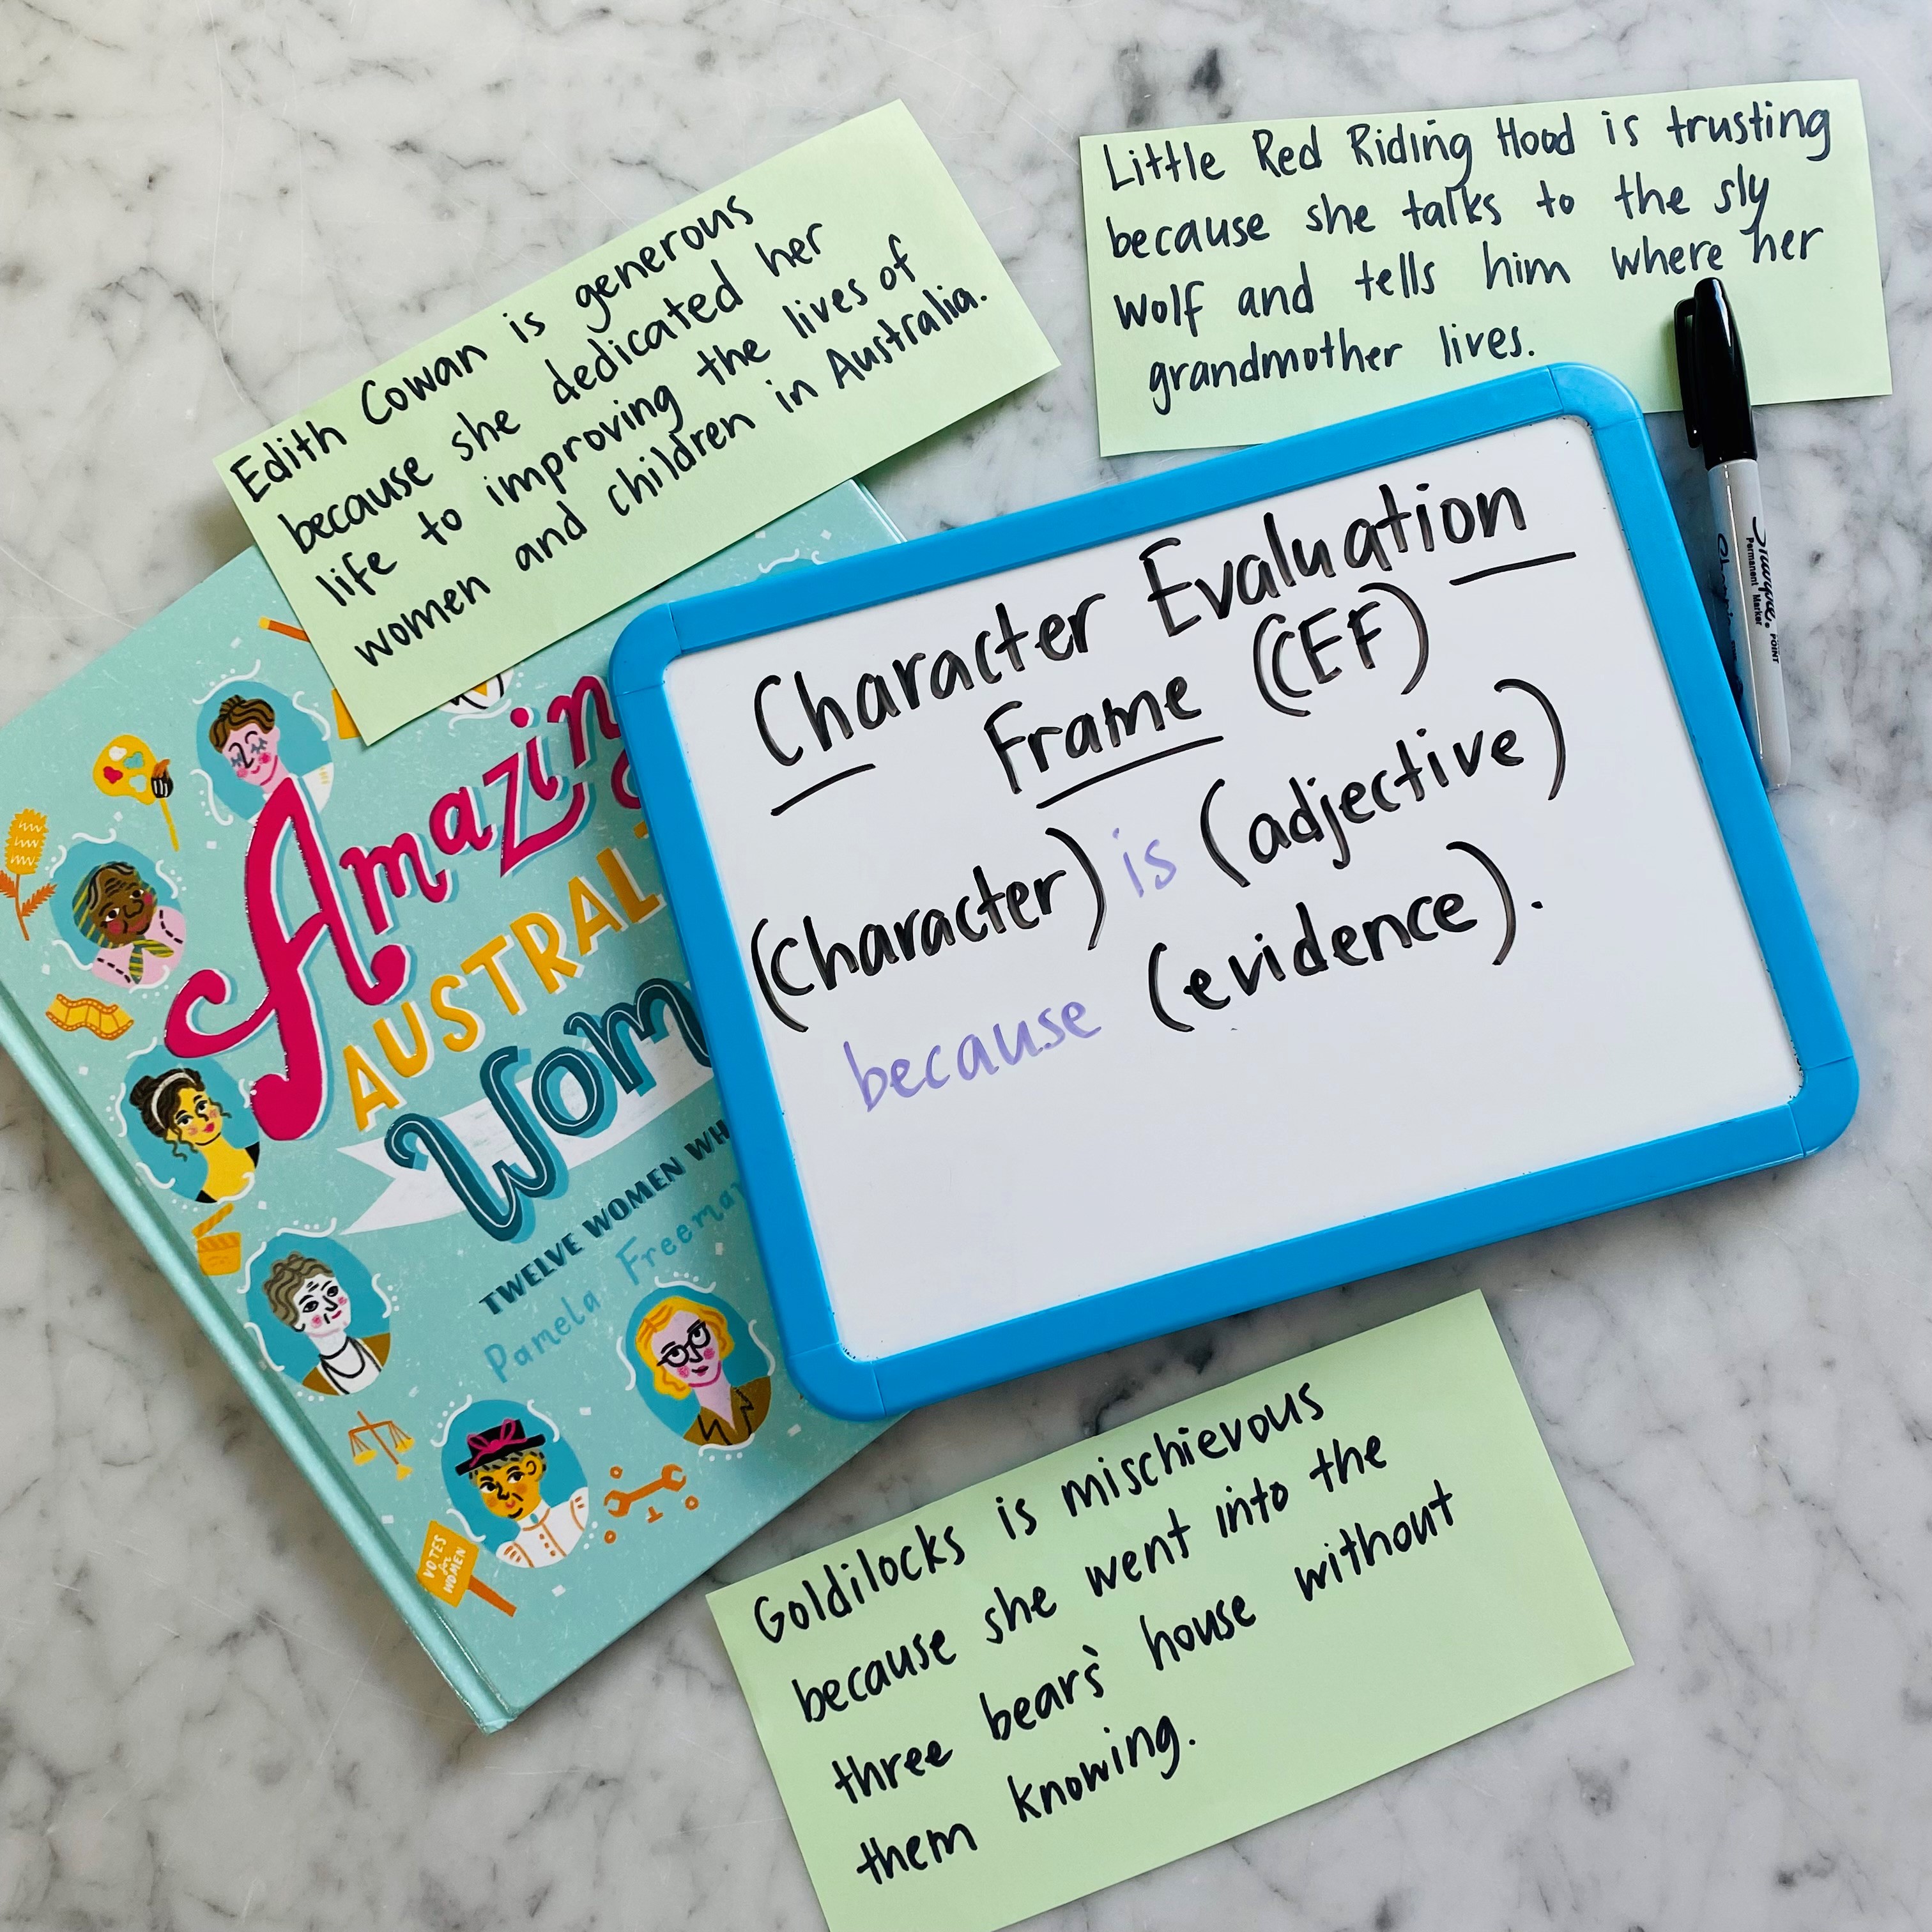 Edith Cowan is generous
because she dedicated her
life to improving the lives of
women and children in Australia.
Little Red Riding Hood is trusting
because she talks to the sly
wolf and tells him where her
grandmother lives.
Character Evaluation
Frame (CEF)
(Character) is (adjective)
because (evidence).
Sharpie.
Permanent Marker
POINT
Amazin
AUSTRAL
Wom
TWELVE WOMEN WH
Pamela Freeman
VOTES
for
WOMEN
Goldilocks is mischievous
because she went into the
three bears' house without
them knowing.